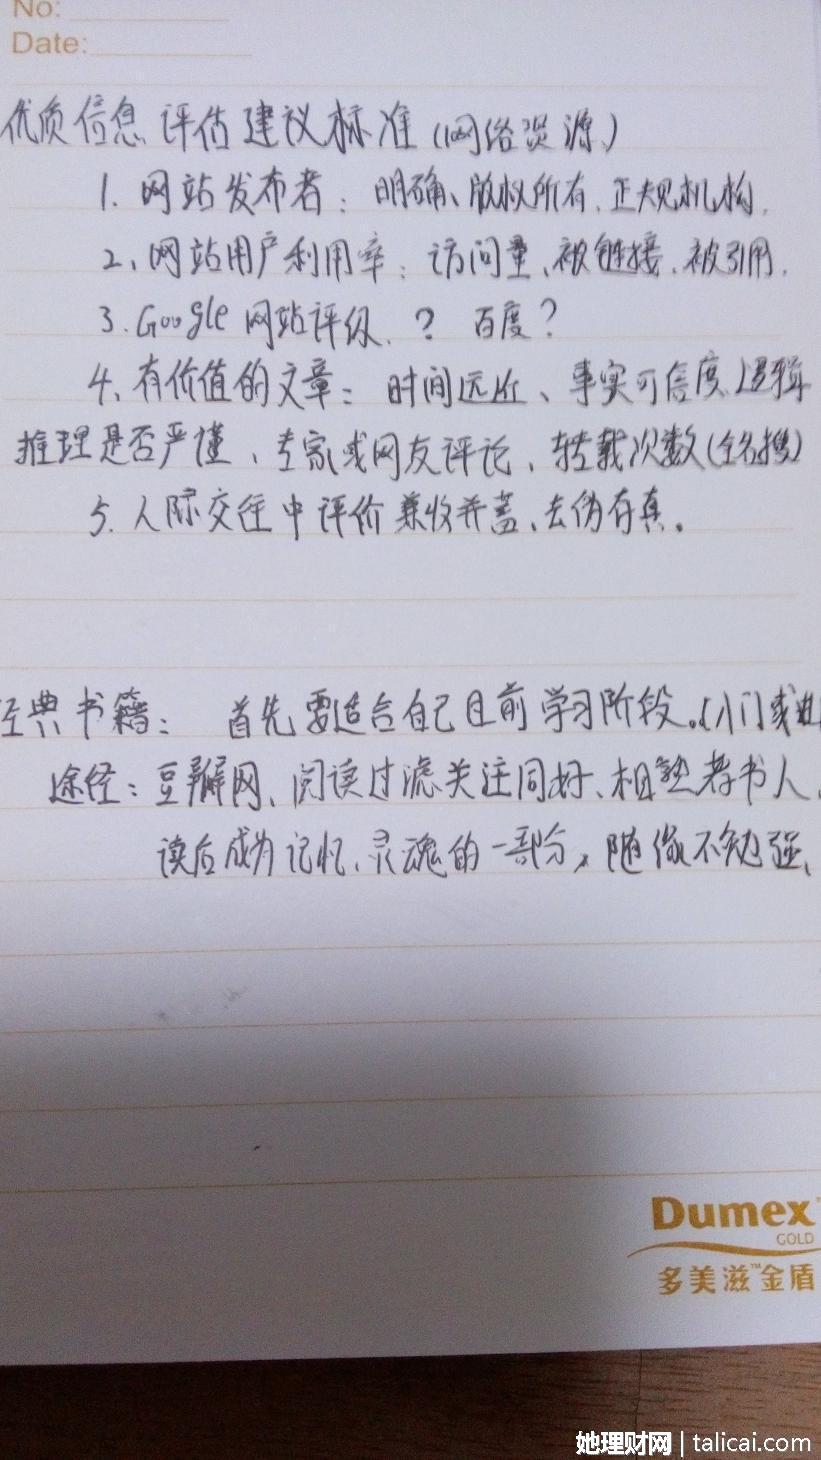 No:
Date:
优质信息评估建议标准(网络资源)
1. 网站发布者:明确、版权所有、正规机构.
2、网站用户利用率:访问量、被链接、被引用.
3. Google 网站评级、? 百度?
4、有价值的文章:时间远近、事实可信度、逻辑
推理是否严谨、专家或网友评论、转载次数(
5. 人际交往中评价兼收并蓄、去伪存真。
经典书籍: 首先要适合自己目前学习阶段。(入门或进
途径:豆瓣网、阅读过滤关注同好、相熟荐书人、
读后成为记忆、灵魂的一部分、随缘不勉强、
Dumex™
GOLD
多美滋™金盾
她理财网|talicai.com